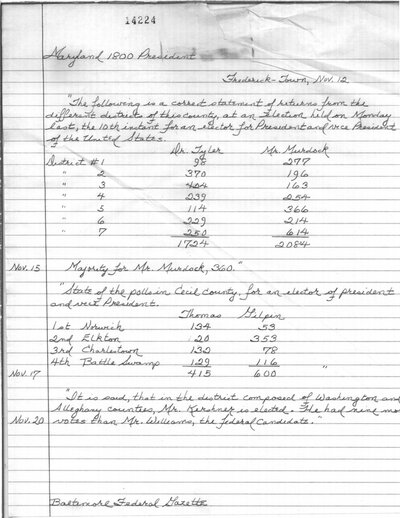 14224
Maryland 1800 President
Frederick-Town, Nov. 12
"The following is a correct statement of returns from the
different districts of this county, at an Election held on Monday
last, the 10th instant for an elector for President and vice President
of the United States.
Dr. Tyler Mr. Murdock
District #1 98 277
" 2 370 196
" 3 424 163
" 4 239 254
" 5 114 366
" 6 229 214
" 7 250 614
1724 2084
Nov. 15 Majority for Mr. Murdock, 360."
"State of the polls in Cecil county, for an elector of president
and vice President.
Thomas Gilpin
1st Norwich 134 53
2nd Elkton 20 353
3rd Charlestown 132 78
4th Battle Swamp 129 116
Nov. 17 415 600 "
"It is said, that in the district composed of Washington and
Alleghany counties, Mr. Kershner is elected. He had nine mo
Nov. 20 votes than Mr. Williams, the federal candidate."
Baltimore Federal Gazette